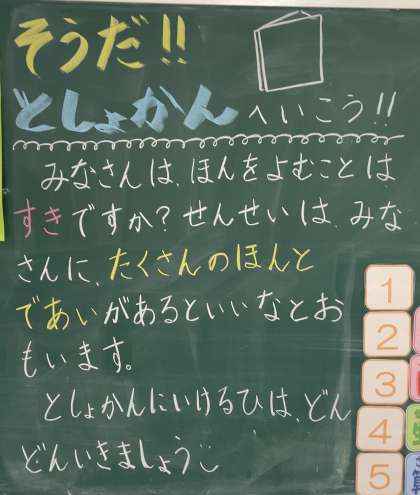 そうだ!!
としょかんへいこう!!
みなさんは、ほんをよむことは
すきですか?せんせいは、みな
さんに、たくさんのほんと
であいがあるといいなとお
もいます。
としょかんにいけるひは、どん
どんいきましょう
1
2
3
4
5